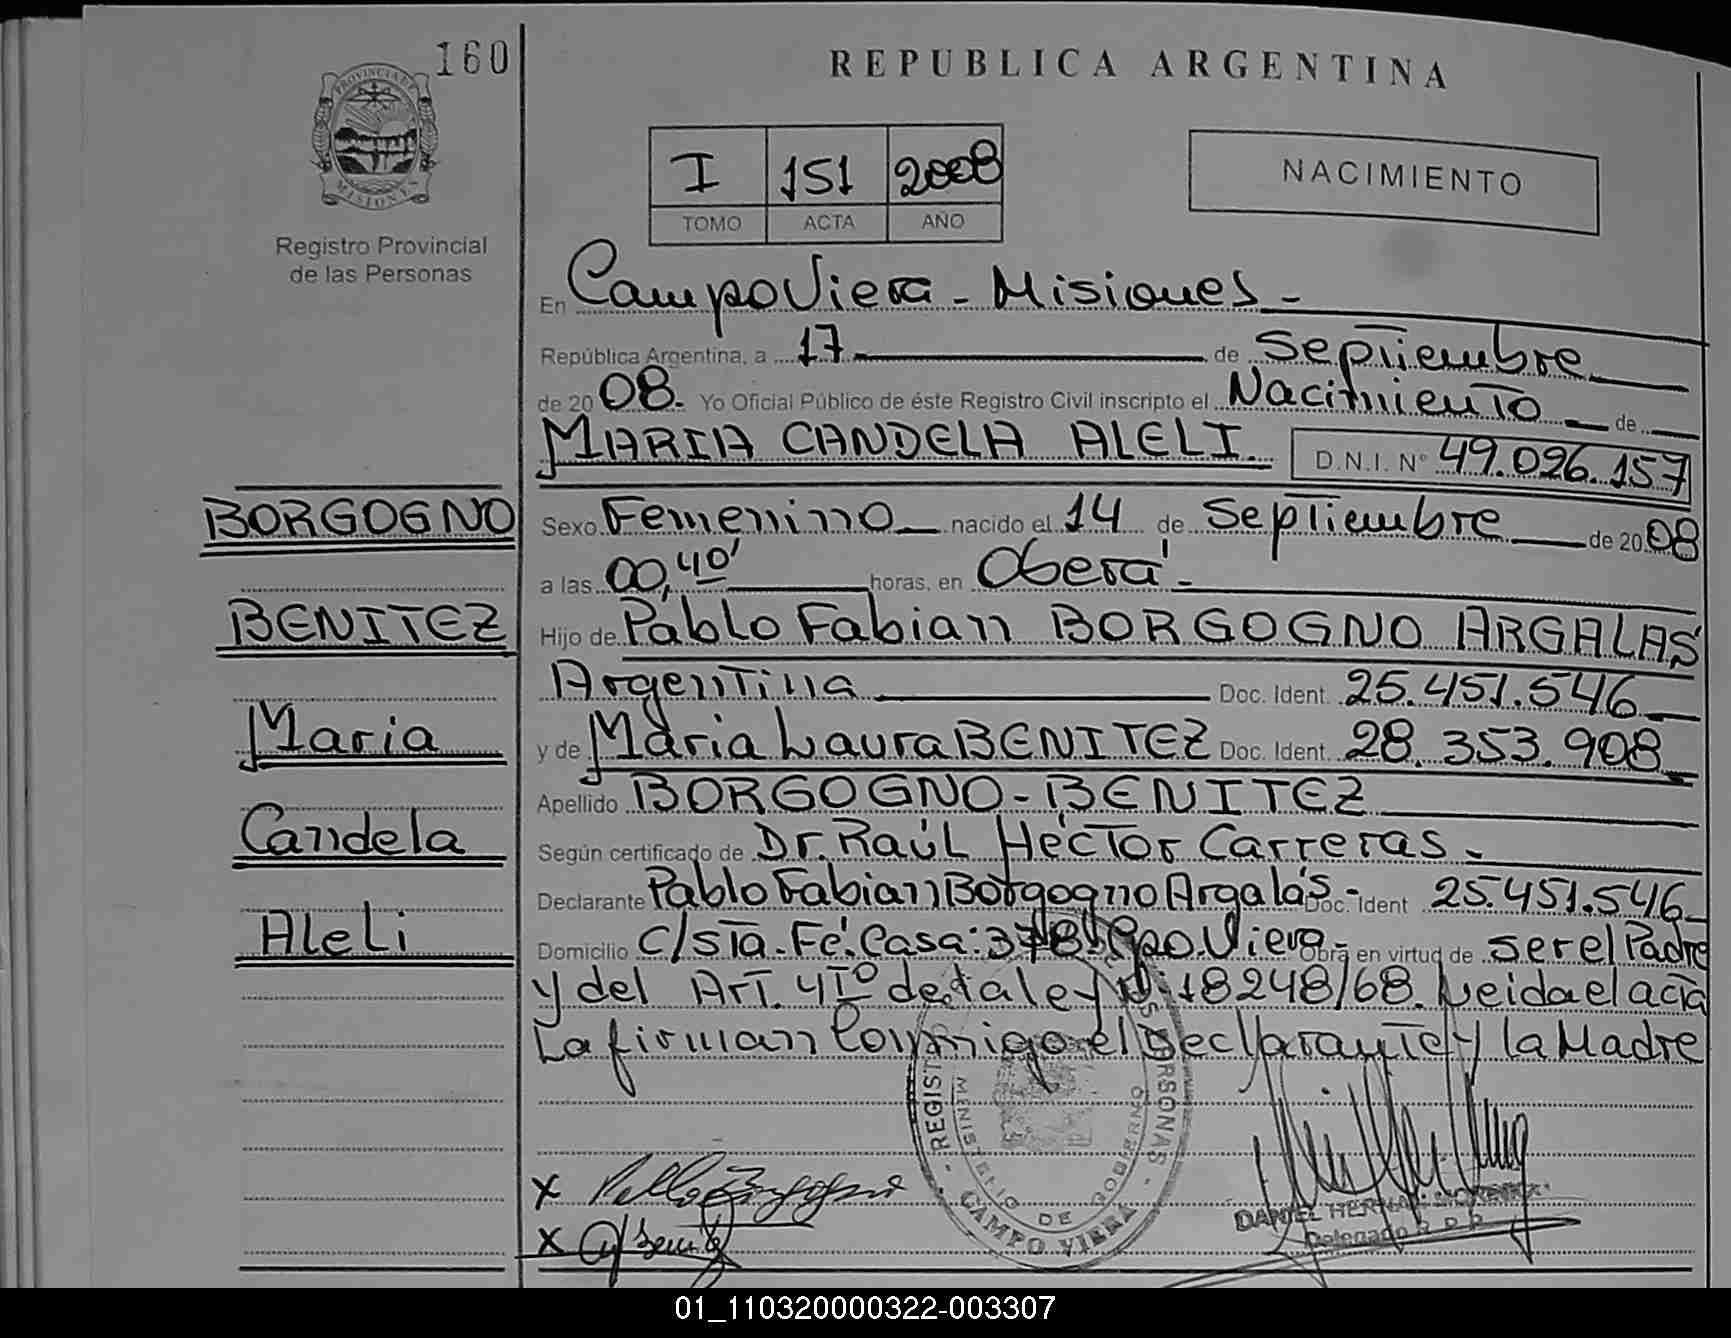 160
PROVINCIA DE
MISIONES
Registro Provincial
de las Personas
REPUBLICA ARGENTINA
I 151 2008
TOMO ACTA AÑO
NACIMIENTO
En Campo Viera - Misiones -
República Argentina, a 17 de Septiembre
de 2008. Yo Oficial Público de éste Registro Civil inscripto el Nacimiento de
MARIA CANDELA ALELI. D.N.I. N° 49.026.157
BORGOGNO
BENITEZ
Maria
Candela
Aleli
Sexo Femenino nacido el 14 de Septiembre de 2008
a las 00,40' horas, en Oberá -
Hijo de Pablo Fabian BORGOGNO ARGALAS
Argentina Doc. Ident. 25.451.546
y de Maria Laura BENITEZ Doc. Ident. 28.353.908
Apellido BORGOGNO - BENITEZ
Según certificado de Dr. Raúl Héctor Carreras -
Declarante Pablo Fabian Borgogno Argalás - Doc. Ident 25.451.546
Domicilio c/sta. Fé. Casa: 378 Cpo. Viera - Obra en virtud de ser el Padre
y del Art. 4to de la ley N 18248/68. Leida el acta
La firman Conmigo el Declarante y la Madre
REGISTRO PERSONAS
MINISTERIO DE GOBIERNO
CAMPO VIERA
x Pablo Borgogno
x
DANIEL HERNAN
Delegado R.P.P.
01_110320000322-003307